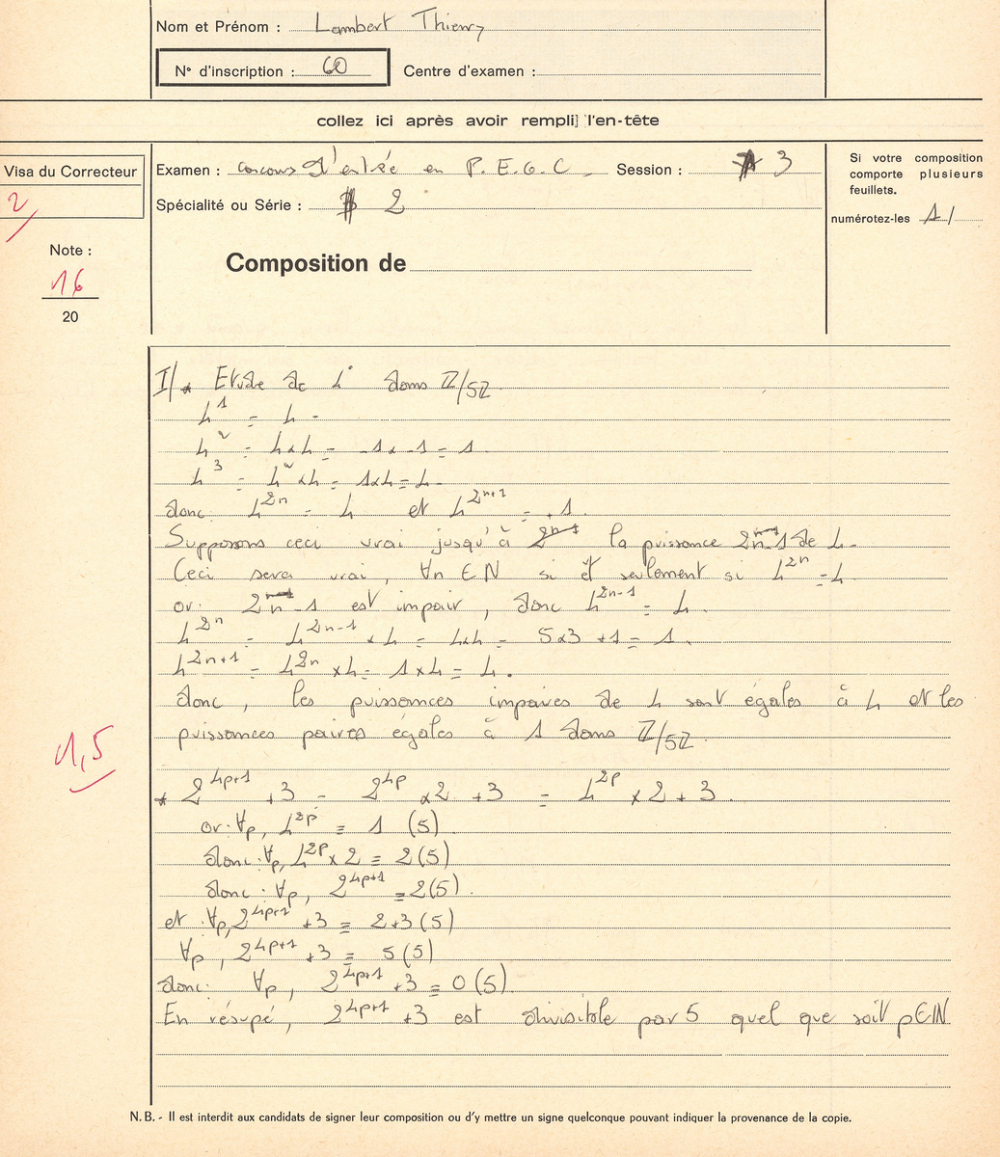 Nom et Prénom : Lambert Thierry
N° d'inscription : 60 Centre d'examen :
collez ici après avoir rempli l'en-tête
Visa du Correcteur
2
Note :
16
20
Examen : concours d'entrée en P.E.G.C. Session : 3
Spécialité ou Série : 2
Composition de
Si votre composition
comporte plusieurs
feuillets.
numérotez-les 1/
I/ * Etude de 4° dans Z/5Z
4^1 = 4.
4^2 = 4x4 = -1x-1 = 1
4^3 = 4^2 x4 = 1x4 = 4.
donc 4^2n = 4 et 4^2n+1 = 1.
Supposons ceci vrai jusqu'à la puissance 2n-1 de 4.
Ceci sera vrai, ∀n ∈ N si et seulement si 4^2n = 4
or. 2n-1 est impair, donc 4^2n-1 = 4.
4^2n = 4^2n-1 x 4 = 4x4 = 5x3 +1 = 1.
4^2n+1 = 4^2n x4 = 1x4 = 4.
donc, les puissances impaires de 4 sont égales à 4 et les
puissances paires égales à 1 dans Z/5Z.
1,5
* 2^4p+1 +3 = 2^4p x2 +3 = 4^2p x2 + 3.
or: ∀p, 4^2p ≡ 1 (5)
donc: ∀p, 4^2p x 2 ≡ 2(5)
donc: ∀p, 2^4p+1 ≡ 2(5).
et ∀p, 2^4p+1 +3 ≡ 2+3(5)
∀p, 2^4p+1 +3 ≡ 5(5)
donc: ∀p, 2^4p+1 +3 ≡ 0(5)
En résupé, 2^4p+1 +3 est divisible par 5 quel que soit p∈IN
N. B. - Il est interdit aux candidats de signer leur composition ou d'y mettre un signe quelconque pouvant indiquer la provenance de la copie.